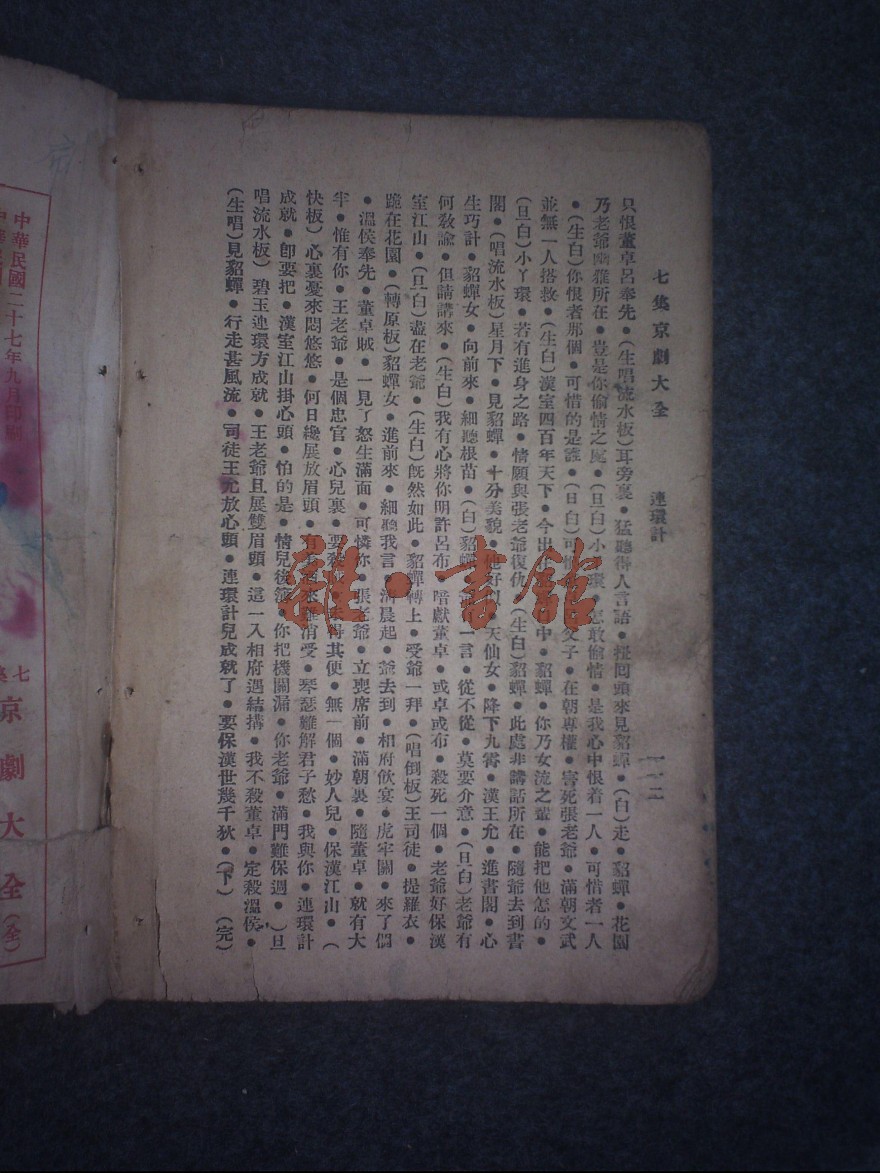 七集京劇大全　連環計　一一二
只恨董卓呂奉先●(生唱流水板)耳旁裏●猛聽得人言語●掟囘頭來見貂蟬●(白)走●貂蟬●花園
乃老爺幽雅所在●豈是你偷情之處●(旦白)小環●怎敢偷情●是我心中恨着一人●可惜者一人
●(生白)你恨者那個●可惜的是誰●(旦白)可父子●在朝專權●害死張老爺●滿朝文武
並無一人搭救●(生白)漢室四百年天下●今出中●貂蟬●你乃女流之輩●能把他怎的●
(旦白)小丫環●若有進身之路●情願與張老爺復仇●(生白)貂蟬●此處非講話所在●隨爺去到書
閣●(唱流水板)星月下●見貂蟬●十分美貌●他好似●天仙女●降下九霄●漢王允●進書閣●心
生巧計●貂蟬女●向前來●細聽根苗●(白)貂蟬一言●從不從●莫要介意●(旦白)老爺有
何敎諭●但請講來●(生白)我有心將你明許呂布●暗獻董卓●或卓或布●殺死一個●老爺好保漢
室江山●(旦白)盡在老爺●(生白)旣然如此●貂蟬轉上●受爺一拜●(唱倒板)王司徒●提羅衣●
跪在花園●(轉原板)貂蟬女●進前來●細聽我言●淸晨起●爺去到●相府飲宴●虎牢關●來了個
●溫侯奉先●董卓賊●一見了怒生滿面●可憐你●張老爺●立喪席前●滿朝裏●隨董卓●就有大
半●惟有你●王老爺●是個忠官●心兒裏●要殺得其便●無一個●妙人兒●保漢江山●(
快板)心裏憂來悶悠悠●何日纔展放眉頭●有來難消受●琴瑟難解君子愁●我與你●連環計
成就●卽要把●漢室江山掛心頭●怕的是●情兒後你把機關漏●你老爺●滿門難保週●(旦
唱流水板)碧玉連環方成就●王老爺且展雙眉頭●這一入相府遇結搆●我不殺董卓●定殺溫侯●
(生唱)見貂蟬●行走甚風流●司徒王允放心頭●連環計兒成就了●要保漢世幾千狄●(下)(完)
中華民國二十七年九月
七集
京劇大全(全)
雜·書館